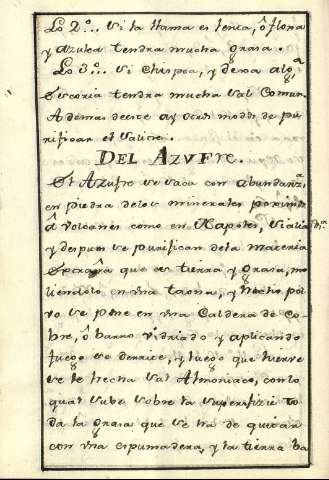 Lo 2º... Si la llama es lenta, ô floxa
y azulea tendra mucha grasa.
Lo 3º... Si Chispea, y dexa algª
Escoria tendra mucha Sal Comun.
Ademas de este ay otros modos de pu
rificar el Salitre.
DEL AZVFre.
El Azufre se saca con abundanzª
en piedra de los minerales
d Volcanes como en Napoles, Sicilia
y despues se purifican de la materia
que es tierra y grasa, mo
liendolo en vna taona, y hecho pol
vo se pone en vna Caldera de co
bre, ô barro vidriado y aplicando
fuego se derrite, y luego que hierve
se le hecha Sal Almoniaco, con lo
qual sube sobre la superfizie to
da la grasa que se ha de quitar
con vna espumadera, y la tierra ba